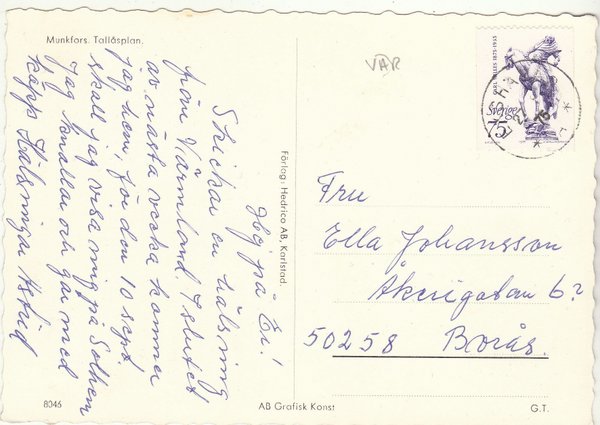 Munkfors. Tallåsplan.
Hej på Er!
Skickar en hälsning
från Värmland. I slutet
av nästa vecka kommer
jag hem, för den 10 sept.
skall jag visa mig på Solhem
Jag knallar och går med
käpp. Hälsningar Astrid
Förlag: Hedrico AB, Karlstad.
8046
AB Grafisk Konst
G.T.
VAR
CARL MILLES 1875-1955
Sverige
75
Fru
Ella Johansson
Åkerigatan 6?
50258 Borås.